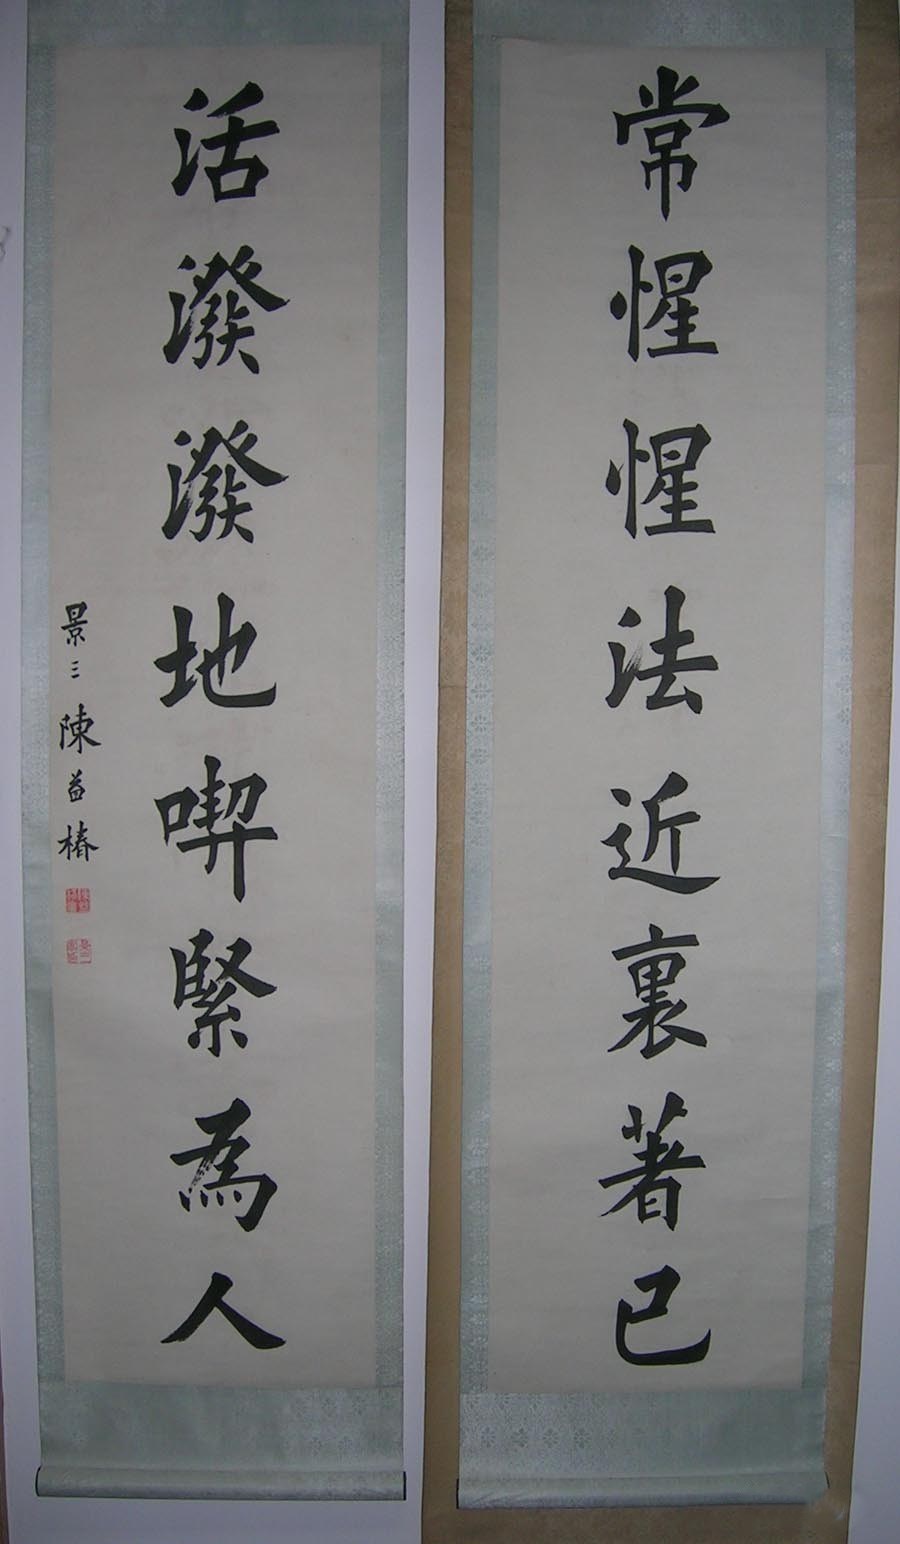 常惺惺法近裏著己
活潑潑地喫緊為人
景三陳益椿